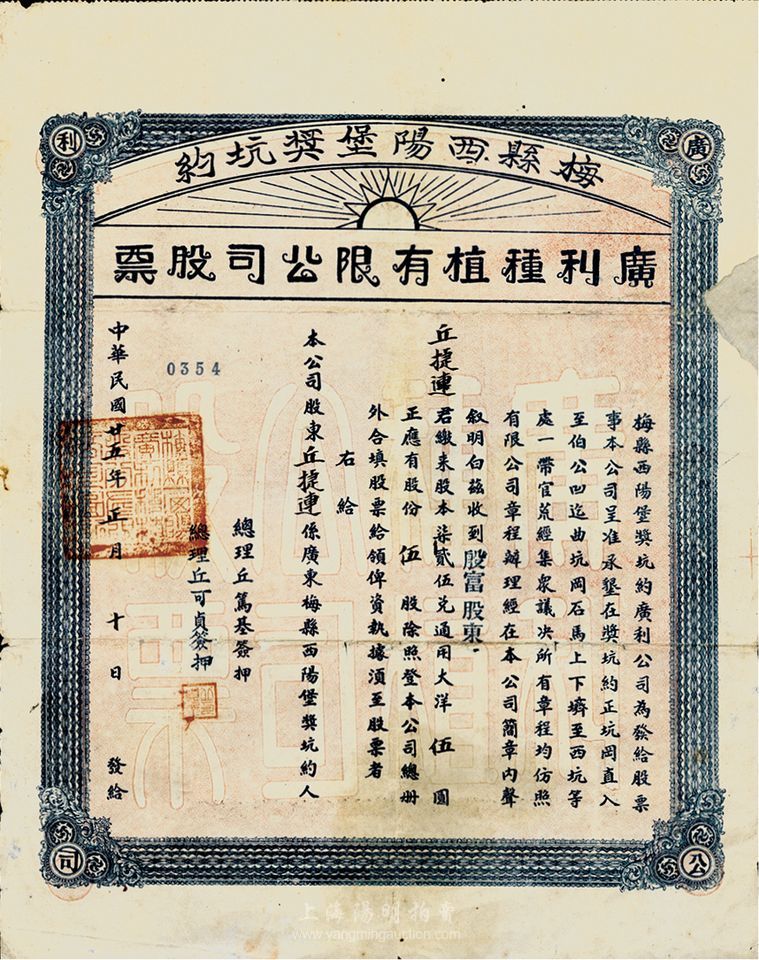 廣
利
公
司
梅縣西陽堡獎坑約
廣利種植有限公司股票
梅縣西陽堡獎坑約廣利公司為發給股票
事本公司呈准承墾在獎坑約正坑岡直入
至伯公凹迄曲坑岡石馬上下㙺至西坑等
處一帶官荒經集衆議决所有章程均仿照
有限公司章程辦理經在本公司簡章内聲
叙明白茲收到股富股東
丘捷連君繳來股本柒貳伍兑通用大洋伍圓
正應有股份伍股除照登本公司總册
外合填股票給領俾資執據湏至股票者
右給
本公司股東丘捷連係廣東梅縣西陽堡獎坑約人
總理丘篤基簽押
總理丘可貞簽押
0354
中華民國廿五年正月十日發給
上海陽明拍賣
www.yangmingauction.com